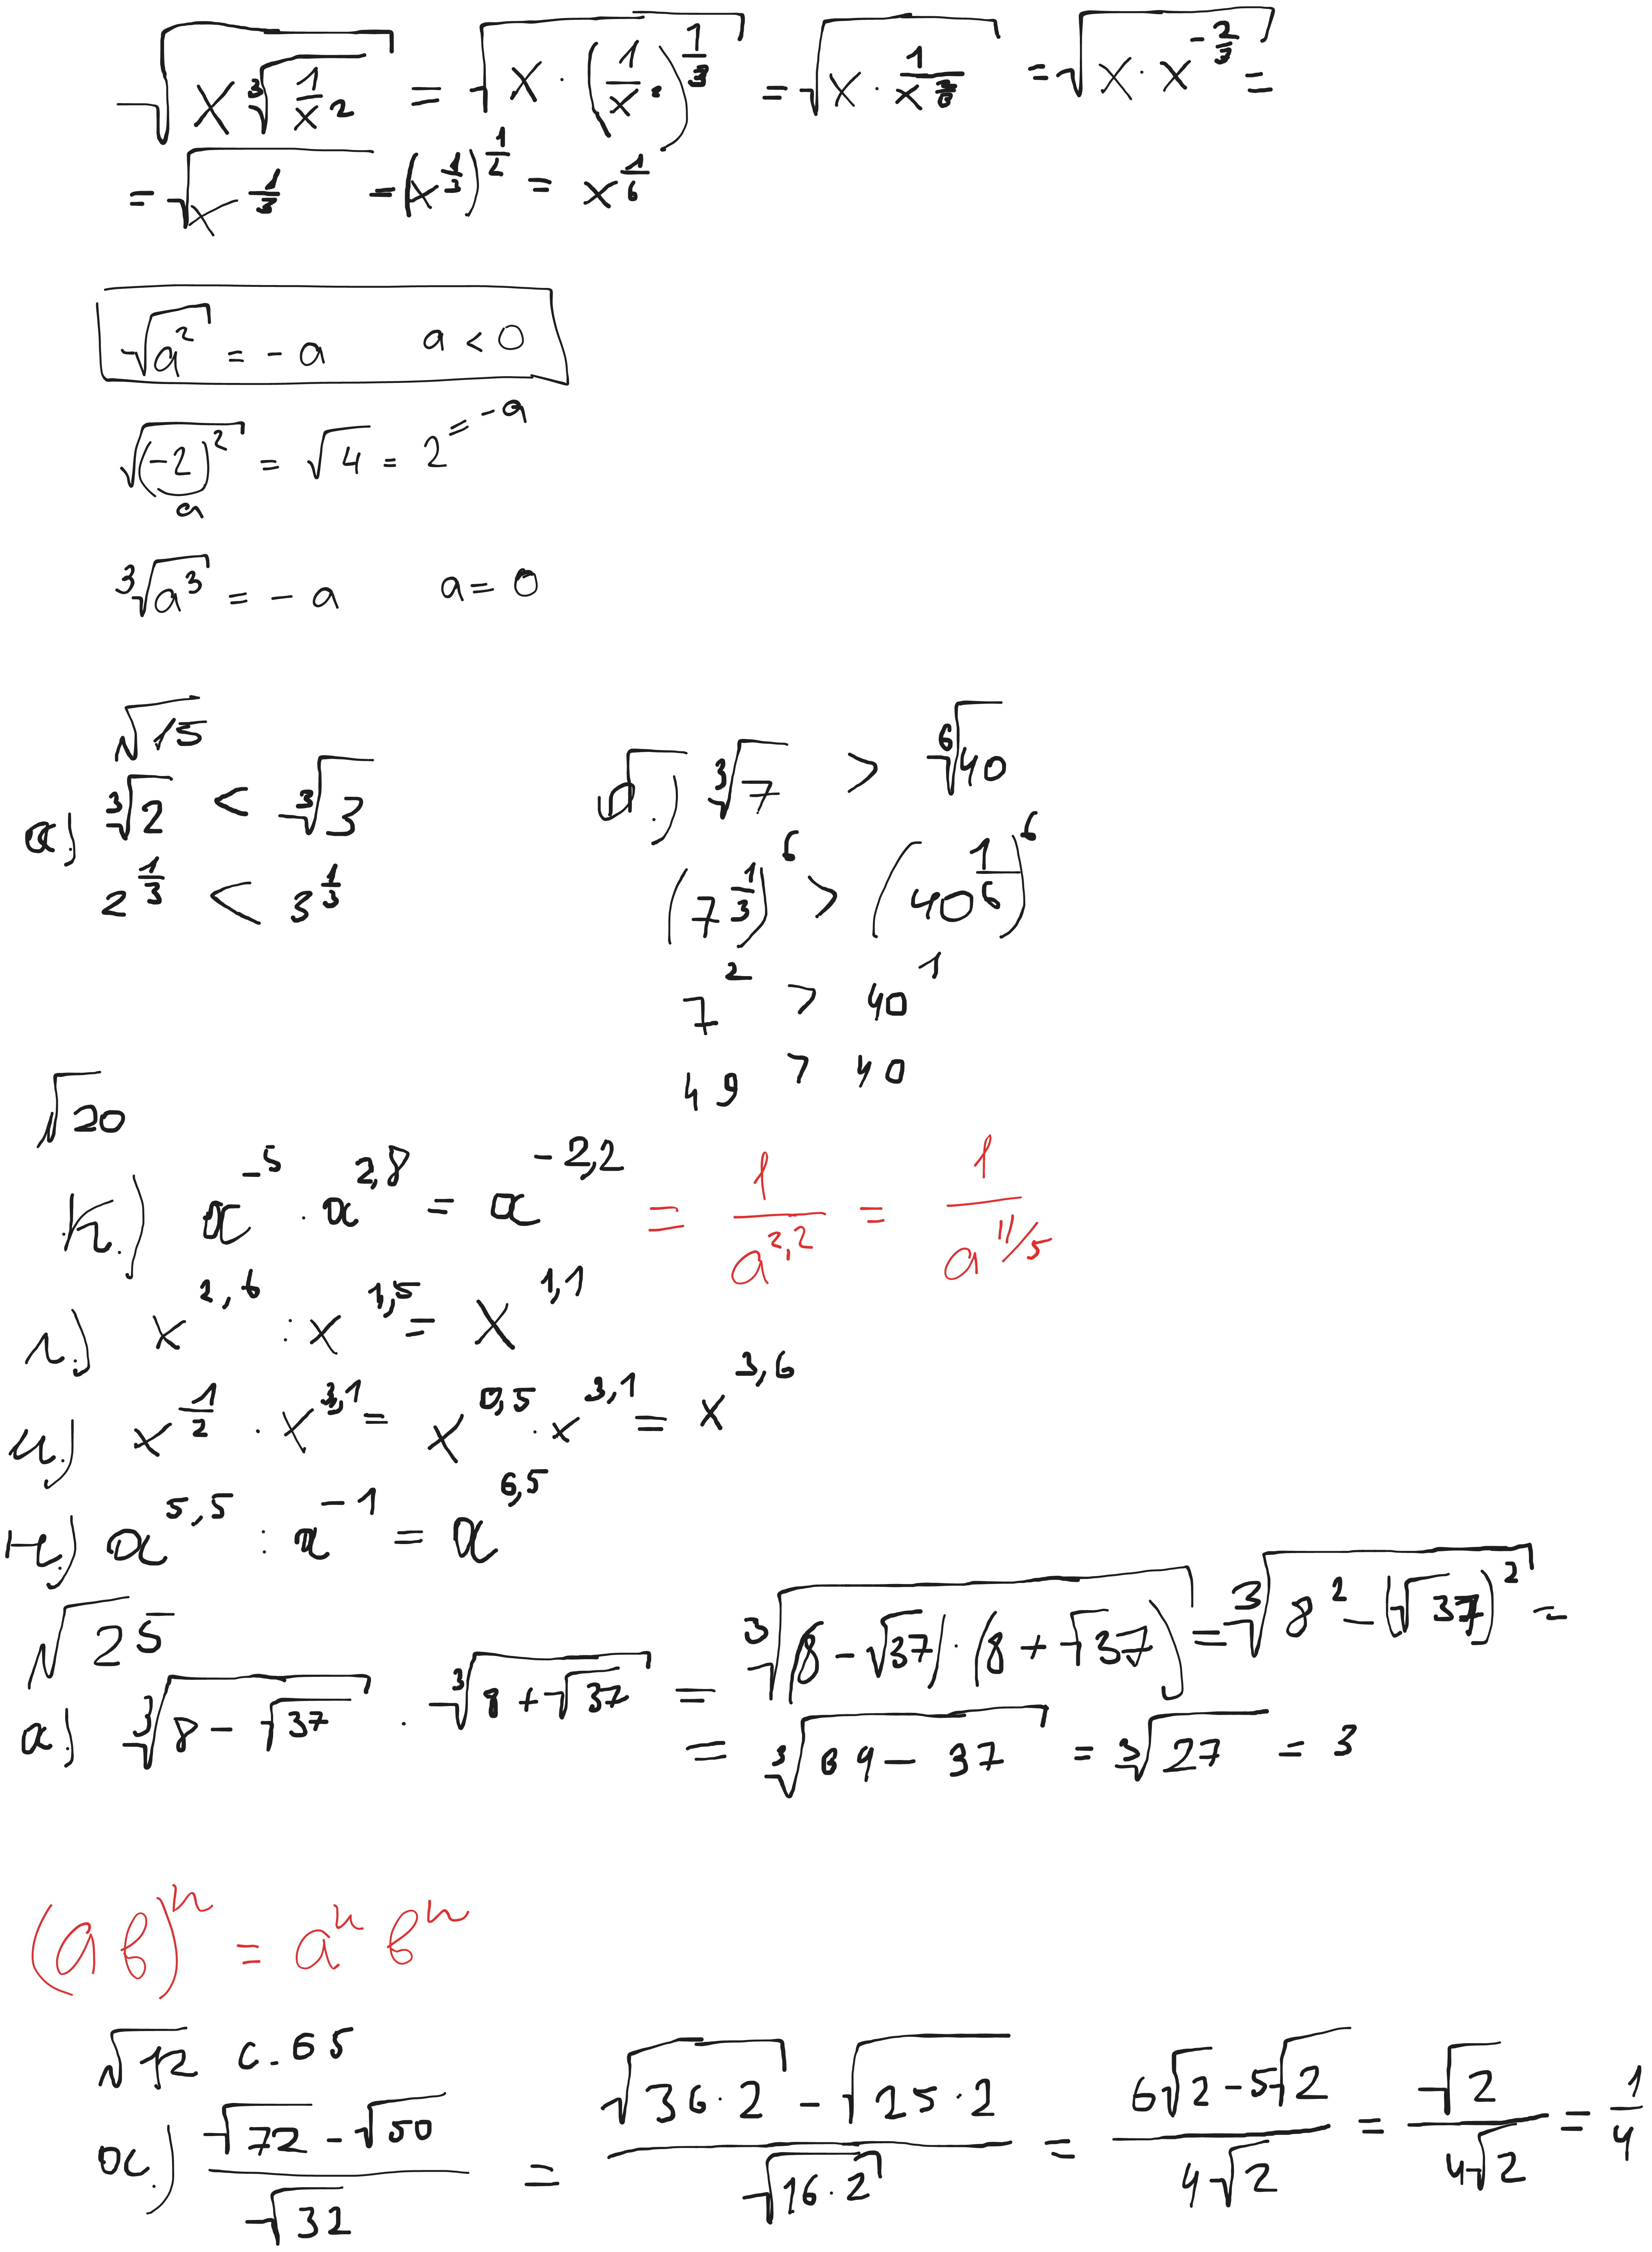 √(x ∛(1/x²)) = √(x · (1/x²)^(1/3)) = √(x · 1/x^(2/3)) = √(x · x^(-2/3)) =
= √(x^(1/3)) = (x^(1/3))^(1/2) = x^(1/6)
√(a²) = - a a < 0
√((-2)²) = √4 = 2 = - a
a
∛(a³) = - a a = 0
√15
а.) ∛2 < ∛3
2^(1/3) < 3^(1/3)
д.) ∛7 > ⁶√40
(7^(1/3))^6 > (40^(1/6))^6
7² > 40¹
49 > 40
√20
к.) a^(-5) · a^(2,8) = a^(-2,2) = 1/a^(2,2) = 1/a^(11/5)
л.) x^(2,6) : x^(1,5) = x^(1,1)
м.) x^(1/2) · x^(3,1) = x^(0,5) · x^(3,1) = x^(3,6)
н.) a^(5,5) : a^(-1) = a^(6,5)
√25
а.) ∛(8 - √37) · ∛(8 + √37) = ∛((8 - √37) · (8 + √37)) = ∛(8² - (√37)²) =
= ∛(64 - 37) = ∛27 = 3
(ab)^n = a^n b^n
√12 с. 65
а.) (√72 - √50)/√32 = (√(36·2) - √(25·2))/√(16·2) = (6√2 - 5√2)/(4√2) = √2/(4√2) = 1/4